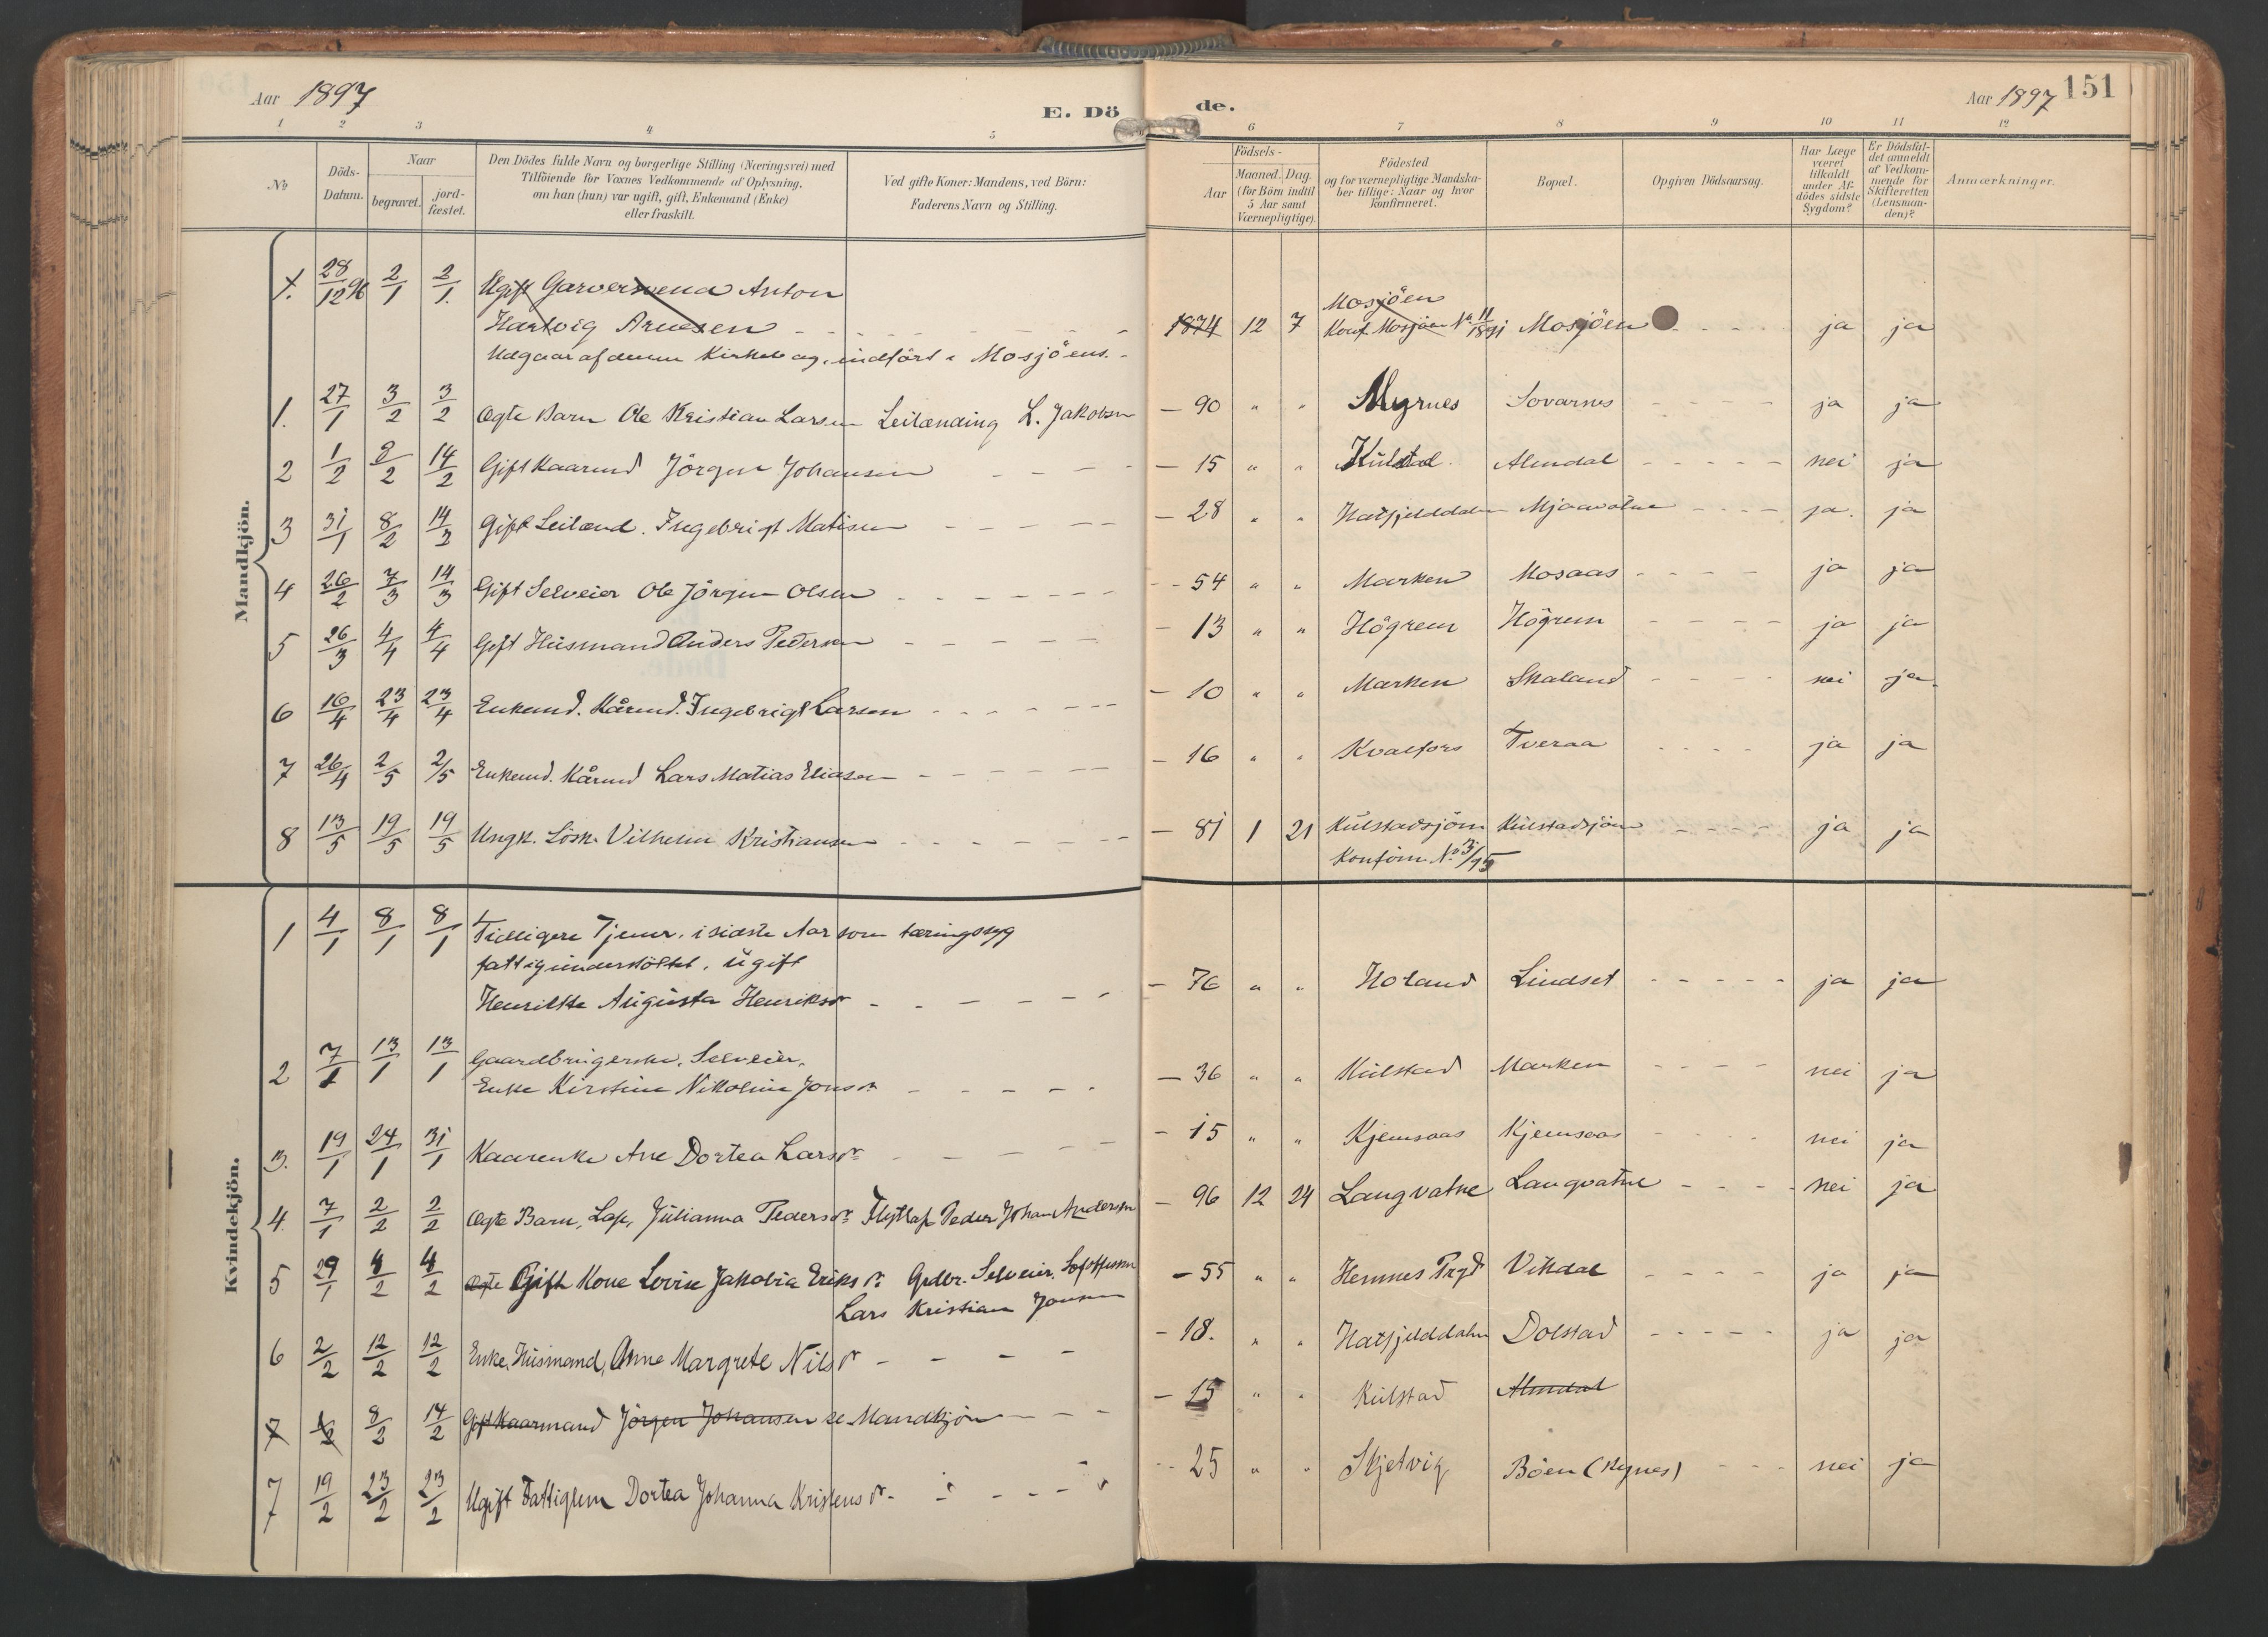 Aar 1897
E. Döde.
Aar 1897 151
1 2 3 4 5 6 7 8 9 10 11 12
No
Döds-Datum.
Naar
begravet.
jordfæstet.
Den Dödes fulde Navn og borgerlige Stilling (Næringsvei) med
Tilföiende for Voxnes Vedkommende af Oplysning,
om han (hun) var ugift, gift, Enkemand (Enke)
eller fraskilt.
Ved gifte Koner: Mandens, ved Börn:
Faderens Navn og Stilling.
Födsels-
Aar
Maaned. Dag.
(for Börn indtil
5 Aar samt
Værnepligtige).
Födested
og for værnepligtige Mandskaber tillige: Naar og hvor
konfirmeret.
Bopæl.
Opgiven Dödsaarsag.
Har Læge
været
tilkaldt
under Afdödes sidste
Sygdom?
Er Dödsfaldet anmeldt
af Vedkommende for
Skifteretten
(Lensmanden)?
Anmærkninger.
Mandkjön.
1. 28/12 96 2/1 2/1. Ugift Garversvend Anton
Hartvig Arnesen 1874 12 7 Mosjöen Konf. Mosjöen No 11/1891 Mosjöen ja ja
Udgaar af denne Kirkebog, indfört i Mosjöens.
1. 27/1 3/2 3/2 Ægte Barn Ole Kristian Larsen Leilænding L. Jakobsen - 90 " " Myrnes Sovarnes ja ja
2 1/2 8/2 14/2 Gift Kaarmd Jörgen Johansen - 15 " " Kulstad. Almdal nei ja
3 31/1 8/2 14/3 Gift Leilænd. Ingebrigt Matisen - 28 " " Hatfjelddalen Mjaavatne ja. ja
4 26/2 7/3 14/3 Gift Selveier Ole Jörgen Olsen - 54 " " Marken Mosaas ja ja
5 26/3 4/4 4/4 Gift Husmand Anders Pedersen - 13 " " Högrem Högrem ja ja
6 16/4 23/4 23/4 Enkemd. Kårmd. Ingebrigt Larsen - 10 " " Marken Skaland nei ja
7 26/4 2/5 2/5 Enkemd. Kårmd Lars Matias Eliasen - 16 " " Kvalfors Tveraa ja ja
8 13/5 19/5 19/5 Ungk. Lösk. Vilhelm Kristiansen - 81 1 21 Kulstadsjöen Kulstadsjöen ja ja
Konfirm. No 3/95
Kvindekjön.
1 4/1 8/1 8/1 Tidligere Tjener. i sidste Aar som tæringssyg
fattigunderstöttet, ugift
Henrikke Augusta Henriksdr - 76 " " Holand Lindset ja ja
2 7/1 13/1 13/1 Gaardbrugerske, Selveier,
Enke Kirstine Nikoline Jonsdr - 36 " " Kulstad Marken nei ja
3. 19/1 24/1 31/1 Kaarenke Ane Dortea Larsdr - 15 " " Kjemsaas Kjemsaas nei ja
4. 7/1 2/2 2/2 Ægte Barn, Lap, Julianna Pedersdr Flytlap Peder Johan Andersen - 96 12 24 Langvatne Langvatne nei ja
5 29/1 4/2 4/2 Ægte Gift Kone Lovise Jakobia Eriksdr Grdbr. Selveier,
Lars Kristian Jonsen - 55 " " Hemnes Prgd Vikdal ja ja
6 2/2 12/2 12/2 Enke, Husmand, Anne Margrete Nilsdr - 18. " " Hatfjelddalen Dolstad ja ja
7 1/2 8/2 14/2 Gift Kaarmand Jörgen Johansen se Mandkjön - 15 " " Kulstad Almdal
7 19/2 23/2 23/2 Ugift Fattiglem Dortea Johanna Kristensdr - 25 " " Skjetvig Böen (Rynes) nei ja